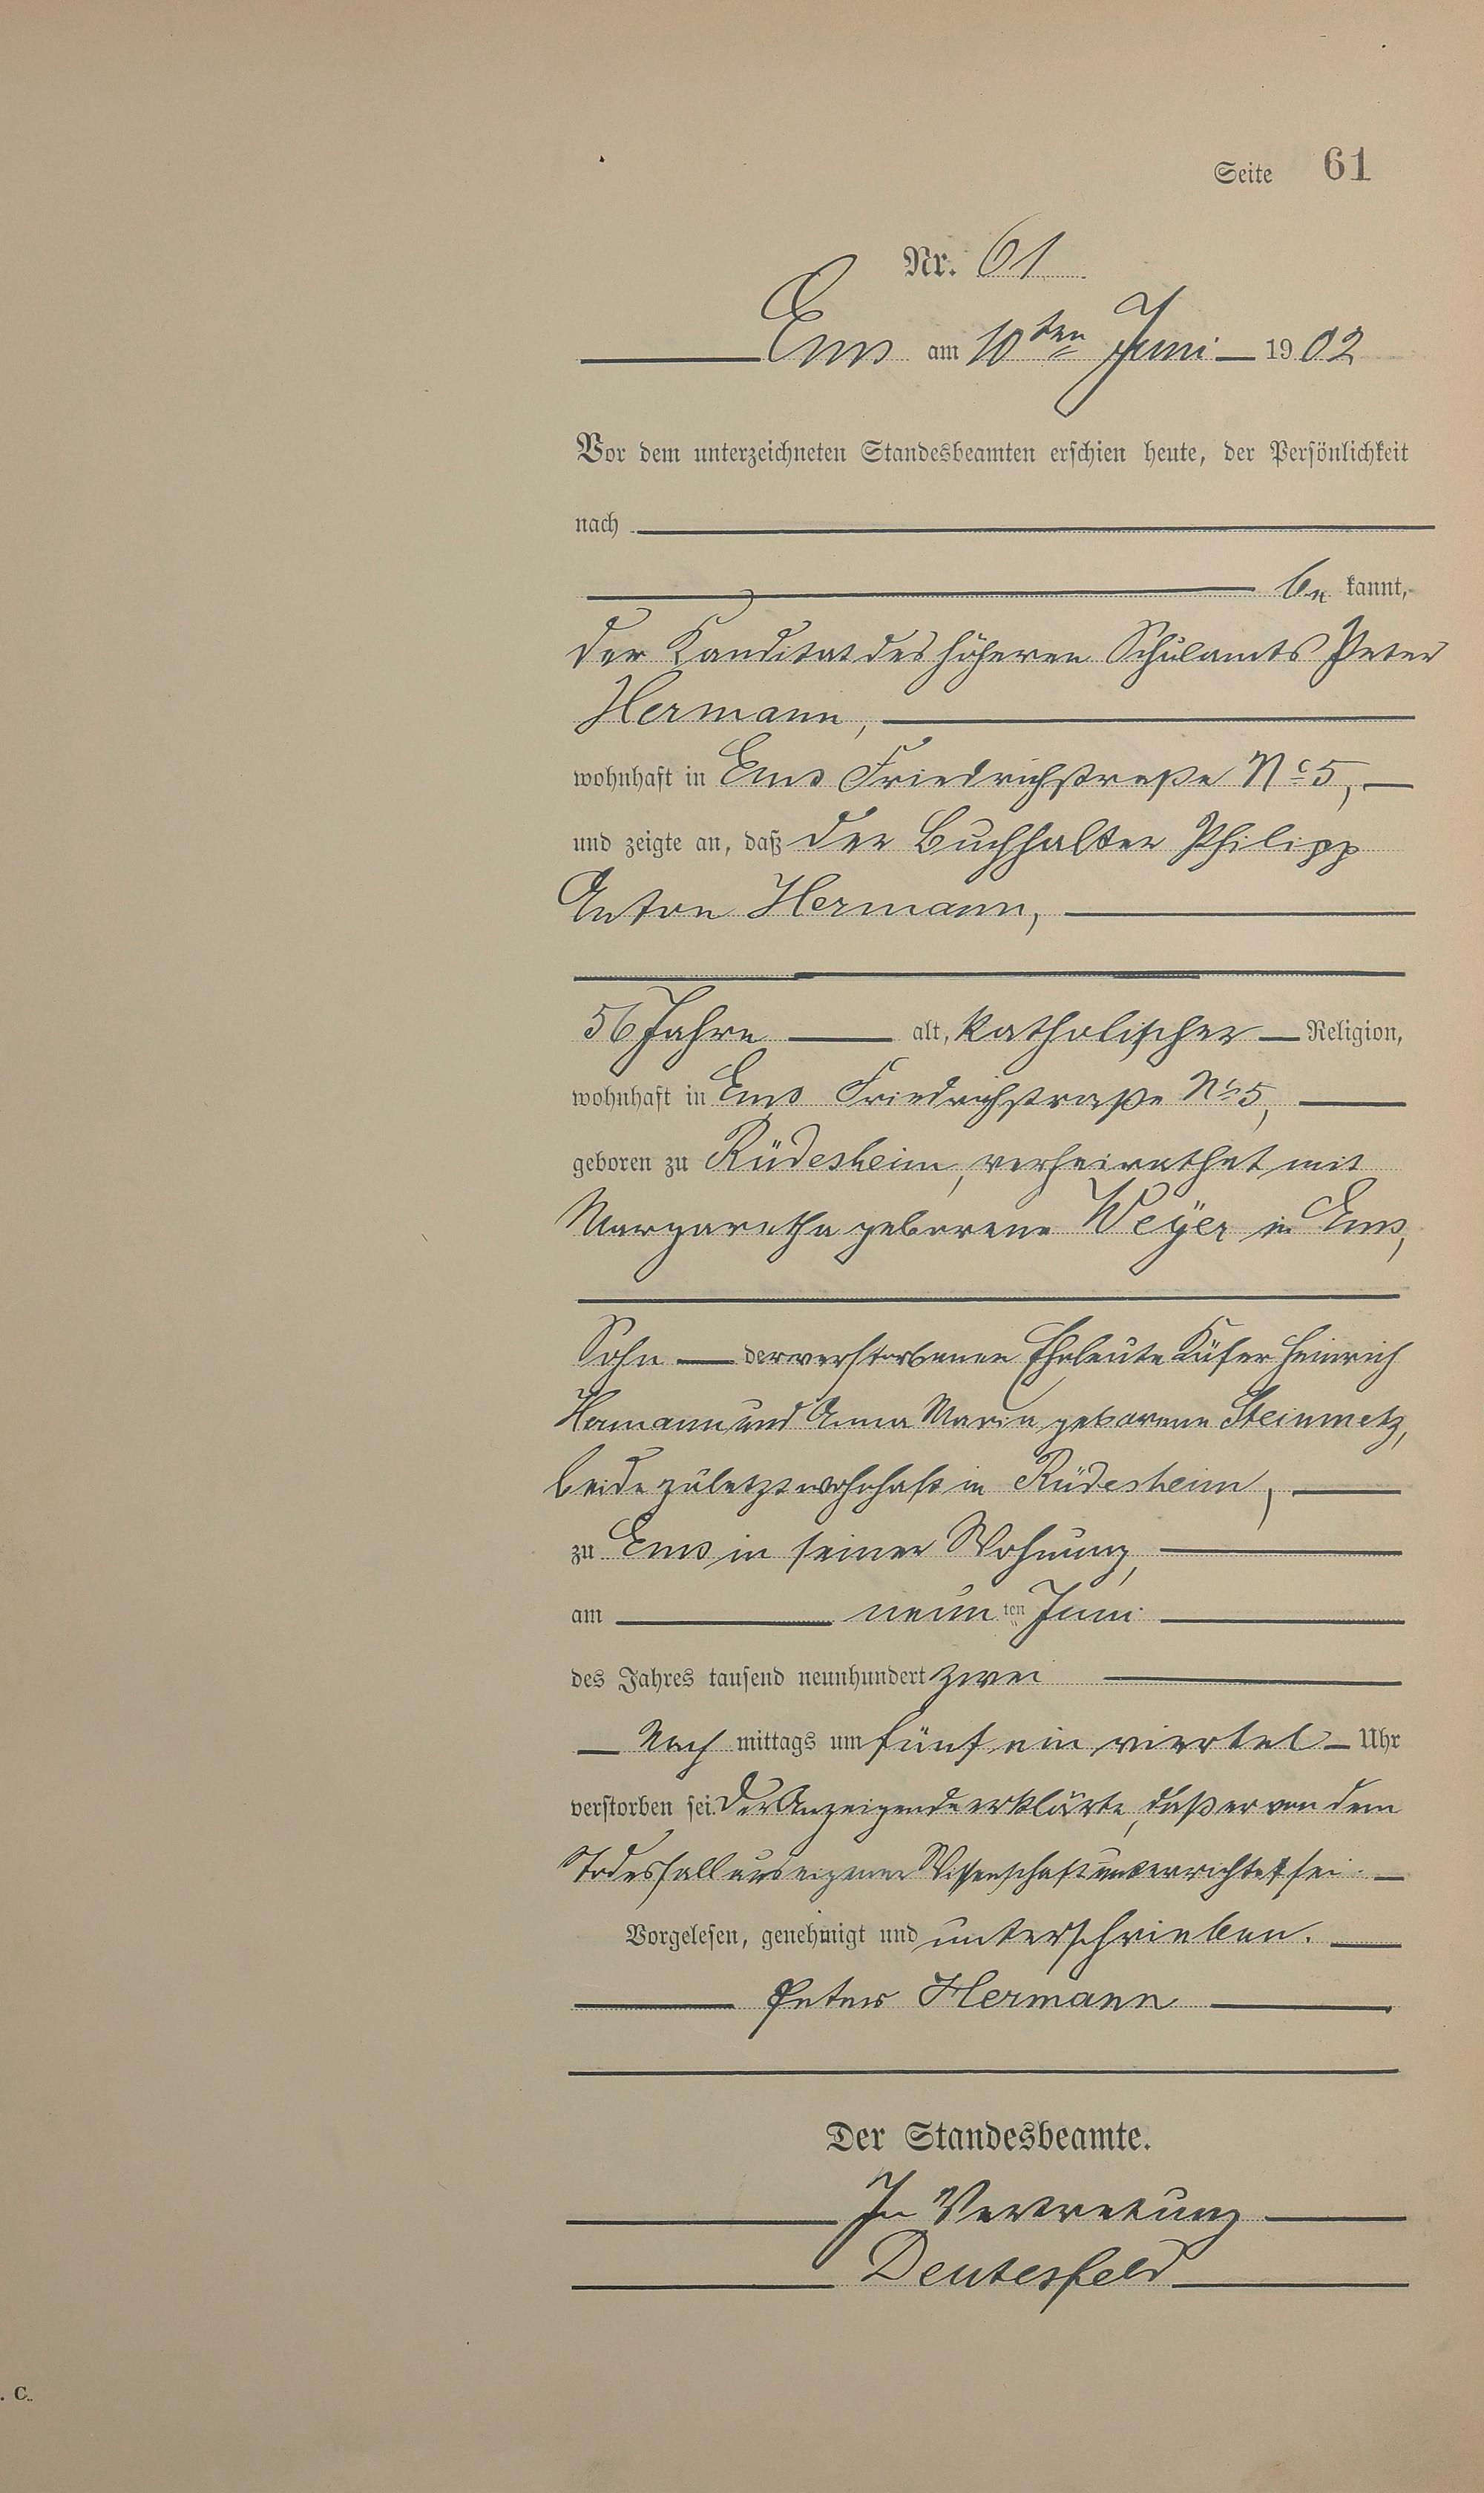 Seite 61
Nr. 61
Ems am 10ten Juni 1902
Vor dem unterzeichneten Standesbeamten erschien heute, der Persönlichkeit
nach
be kannt,
der Kanditat des höheren Schulamts Peter
Hermann,
wohnhaft in Ems Friedrichstraße No 5,
und zeigte an, daß der Buchhalter Philipp
Anton Hermann,
56 Jahre alt, katholischer Religion,
wohnhaft in Ems Friedrichstraße No 5,
geboren zu Rüdesheim, verheirathet mit
Margaretha geborene Weÿer in Ems,
Sohn der verstorbenen Eheleute Küfer Heinrich
Hermann und Anna Maria geborene Steinmetz,
beide zuletzt wohnhaft in Rüdesheim,
zu Ems in seiner Wohnung,
am neun ten Juni
des Jahres tausend neunhundert zwei
Nach mittags um fünf ein viertel Uhr
verstorben sei. Der Anzeigende erklärte, daß er von dem
Todesfall aus eigener Wissenschaft unterrichtet sei.
Vorgelesen, genehmigt und unterschrieben.
Peter Hermann
Der Standesbeamte.
In Vertretung
Deutesfeld
. C.